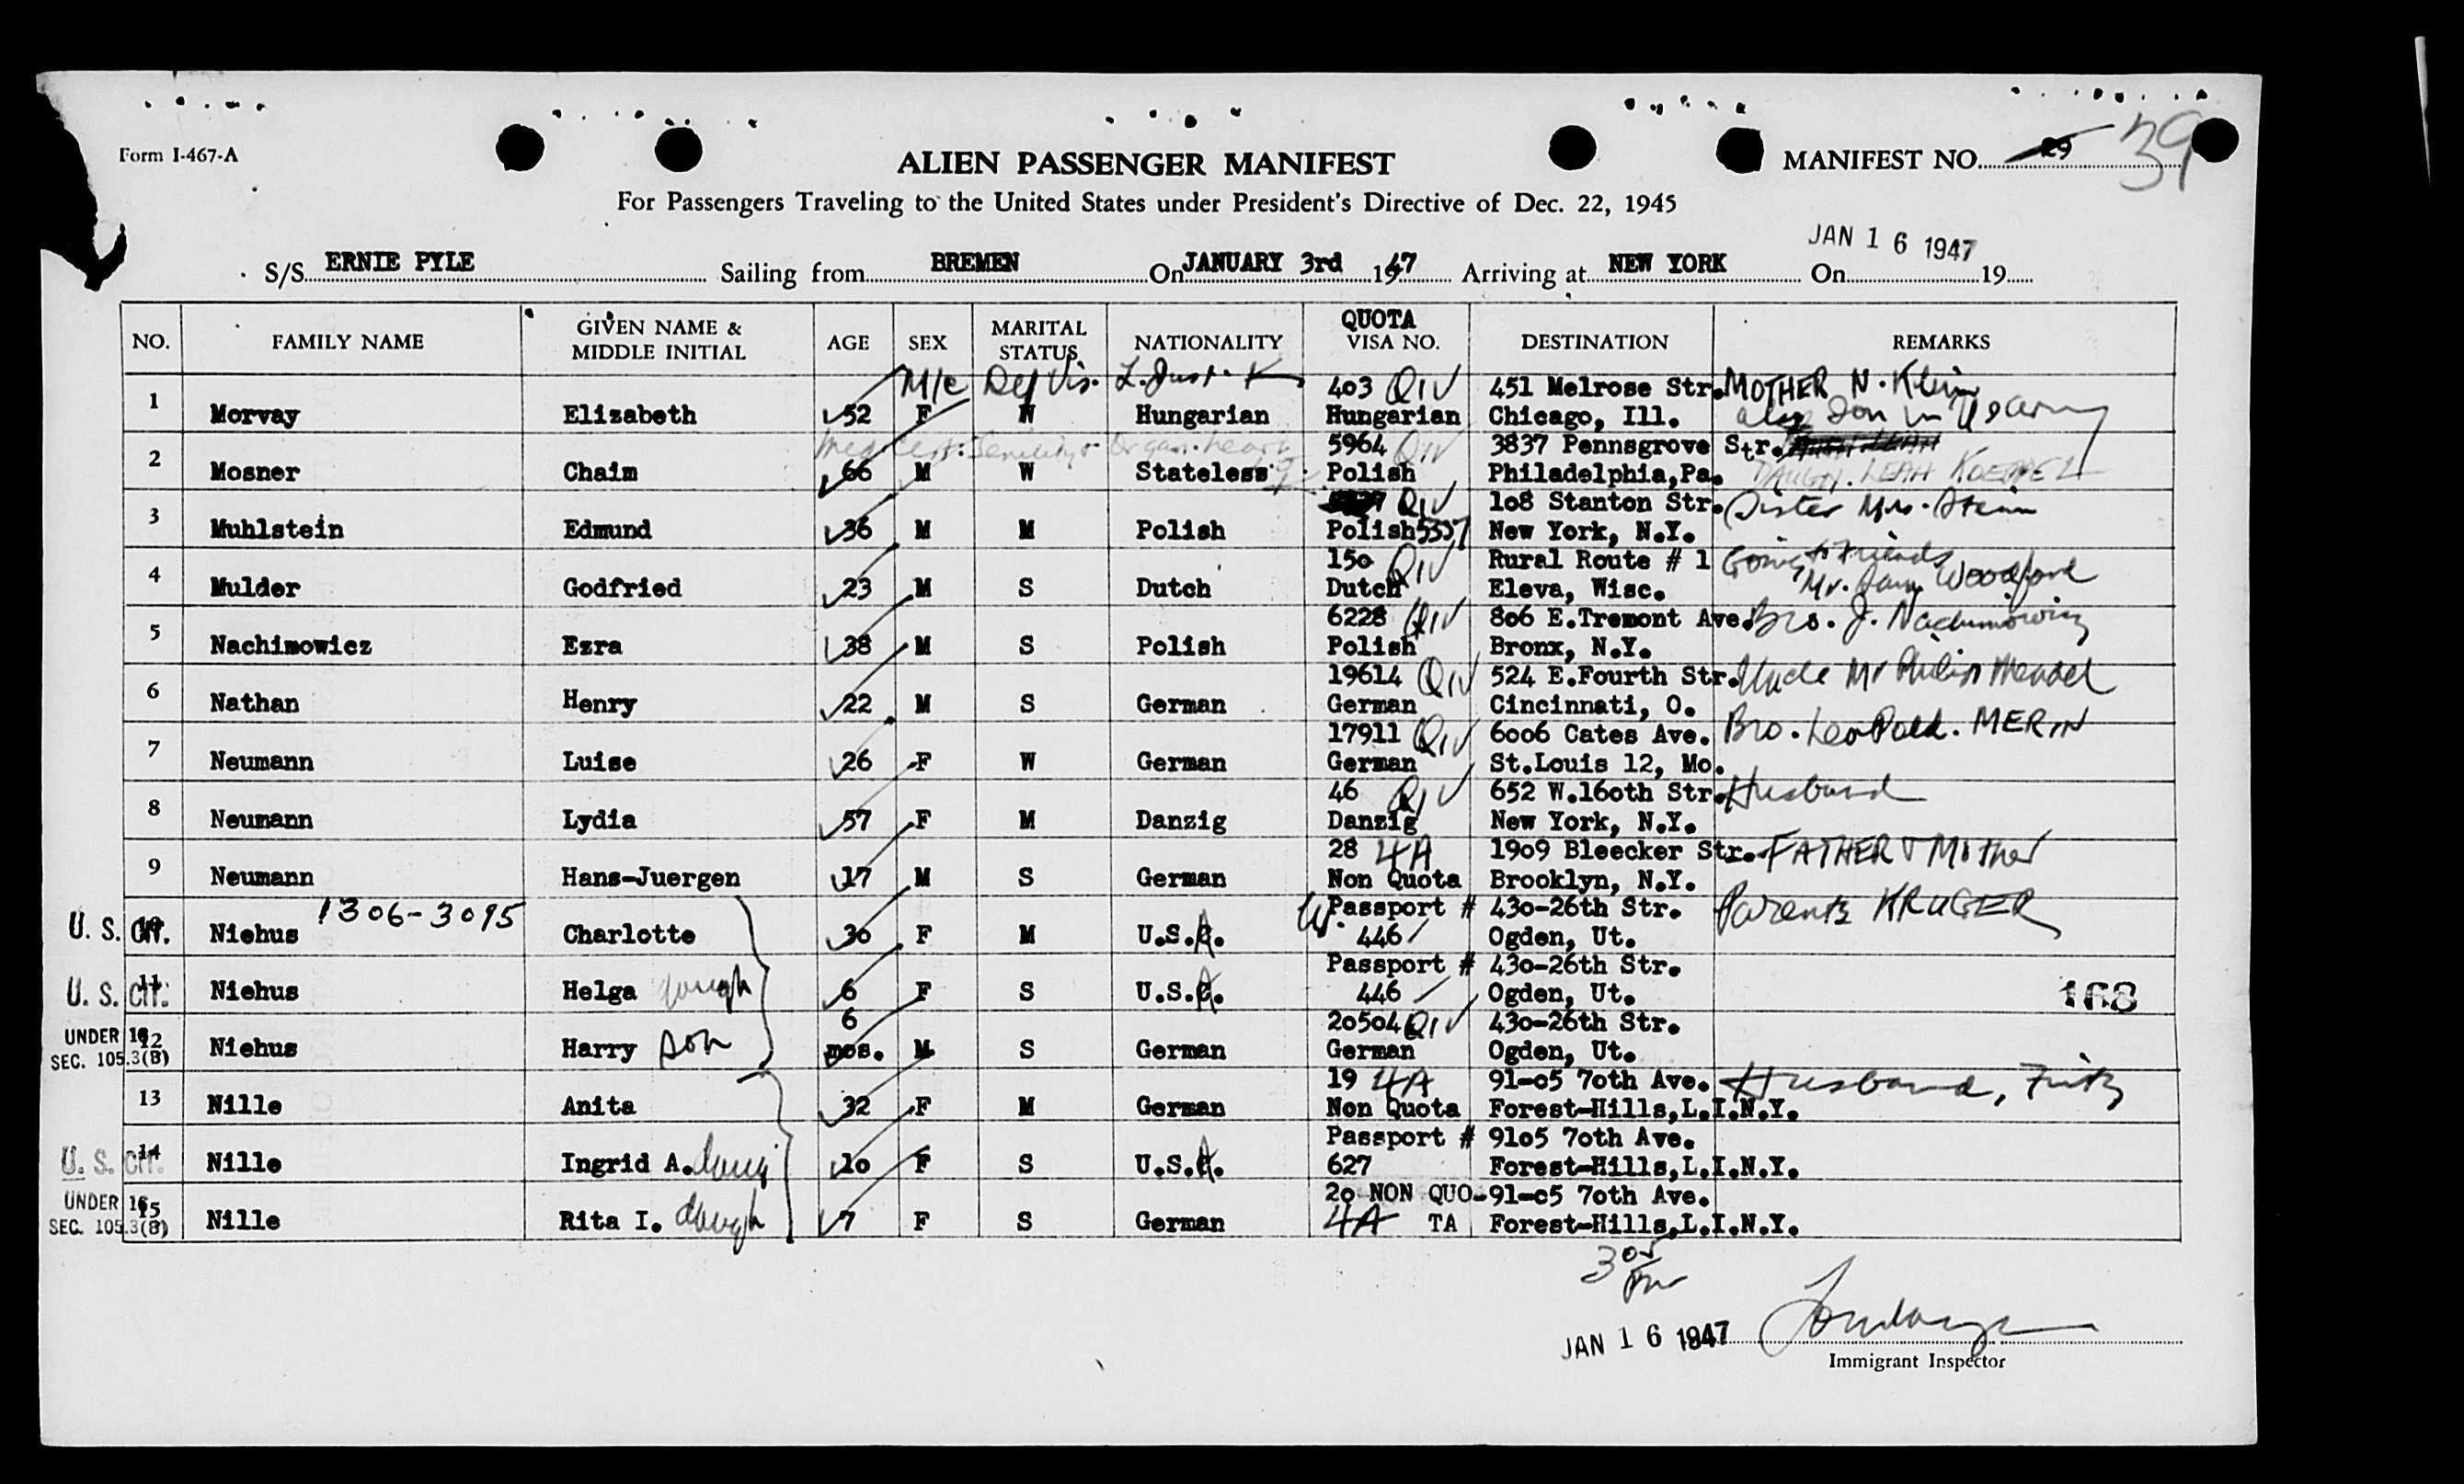 Form I-467-A
ALIEN PASSENGER MANIFEST
MANIFEST NO. 29 39
For Passengers Traveling to the United States under President's Directive of Dec. 22, 1945
JAN 16 1947
S/S ERNIE PYLE Sailing from BREMEN On JANUARY 3rd 1947 Arriving at NEW YORK On 19
NO. FAMILY NAME GIVEN NAME & MIDDLE INITIAL AGE SEX MARITAL STATUS NATIONALITY QUOTA VISA NO. DESTINATION REMARKS
M/c Def Vis.
403 QIV 451 Melrose Str. MOTHER N. Klein
1 Morvay Elizabeth 52 F W Hungarian Hungarian Chicago, Ill. Son in
5964 QIV 3837 Pennsgrove Str.
2 Mosner Chaim 66 M W Stateless Polish Philadelphia,Pa. DAUGH. LEAH KOEPPEL
QIV 108 Stanton Str. Sister Mrs. Stein
3 Muhlstein Edmund 36 M M Polish Polish 5357 New York, N.Y.
150 QIV Rural Route # 1 Going to Friends
4 Mulder Godfried 23 M S Dutch Dutch Eleva, Wisc. Mr. Woodford
6228 QIV 806 E.Tremont Ave. Bro. J. Nachimowicz
5 Nachimowicz Ezra 38 M S Polish Polish Bronx, N.Y.
19614 QIV 524 E.Fourth Str. Uncle Mr Philip Mendel
6 Nathan Henry 22 M S German German Cincinnati, O.
17911 QIV 6006 Cates Ave. Bro. Leopold. MERIN
7 Neumann Luise 26 F W German German St.Louis 12, Mo.
46 QIV 652 W.160th Str. Husband
8 Neumann Lydia 57 F M Danzig Danzig New York, N.Y.
28 4A 1909 Bleecker Str. FATHER & Mother
9 Neumann Hans-Juergen 17 M S German Non Quota Brooklyn, N.Y.
1306-3095 Passport # 430-26th Str. Parents KRUGER
U. S. CIT. 10 Niehus Charlotte 30 F M U.S.A. 446 Ogden, Ut.
Passport # 430-26th Str.
U. S. CIT. 11 Niehus Helga daugh 6 F S U.S.A. 446 Ogden, Ut. 168
UNDER 16 6 20504 QIV 430-26th Str.
SEC. 105.3(B) 12 Niehus Harry son mos. M S German German Ogden, Ut.
19 4A 91-05 70th Ave. Husband, Fritz
13 Nille Anita 32 F M German Non Quota Forest-Hills,L.I.N.Y.
Passport # 9105 70th Ave.
U. S. CIT. 14 Nille Ingrid A. daug 10 F S U.S.A. 627 Forest-Hills,L.I.N.Y.
UNDER 16 20 NON QUO- 91-05 70th Ave.
SEC. 105.3(B) 15 Nille Rita I. daugh 7 F S German 4A TA Forest-Hills,L.I.N.Y.
305 Pm
JAN 16 1947
Immigrant Inspector